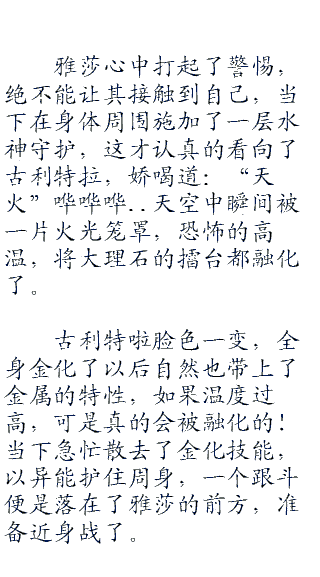 雅莎心中打起了警惕，
绝不能让其接触到自己，当
下在身体周围施加了一层水
神守护，这才认真的看向了
古利特拉，娇喝道：“天
火”哗哗哗..天空中瞬间被
一片火光笼罩，恐怖的高
温，将大理石的擂台都融化
了。
古利特啦脸色一变，全
身金化了以后自然也带上了
金属的特性，如果温度过
高，可是真的会被融化的！
当下急忙散去了金化技能，
以异能护住周身，一个跟斗
便是落在了雅莎的前方，准
备近身战了。